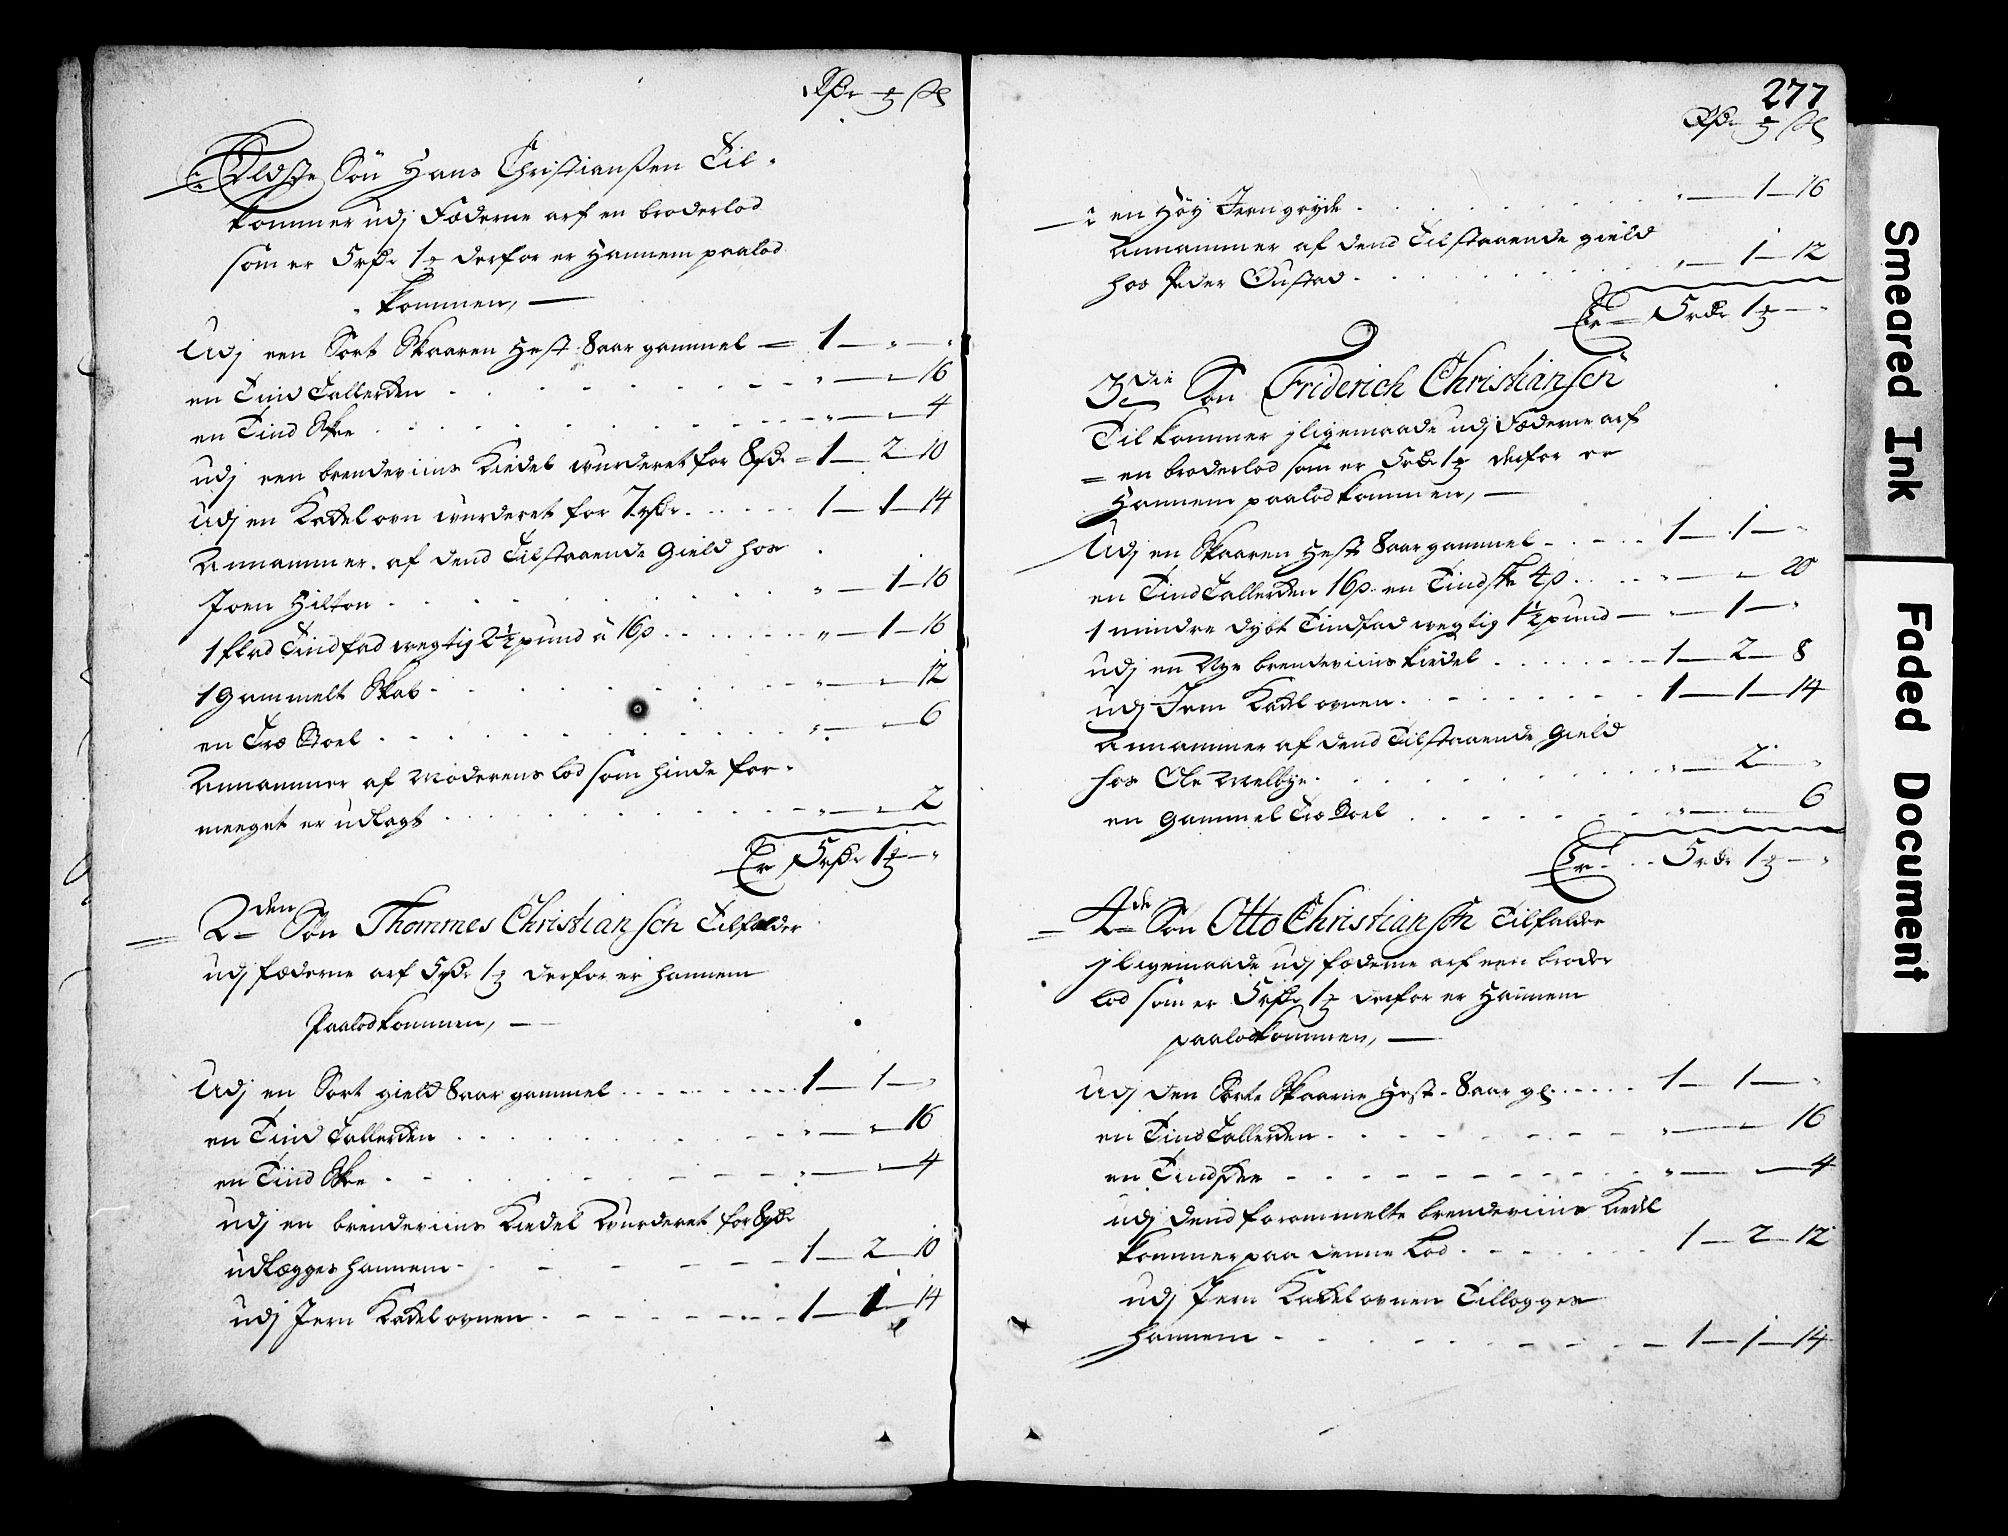 Rdr ℥ ſk
Eldste Søn Hans Christianßen Til-
kommer udj Fæderne arf en broderlod
som er 5 rdr 1 ℥ derfor er Hannem paalod
kommen, —
Udj een Sort Skaaren Hest 8 aar gammel = 1 — " — "
en Tind Tallerken . . . " — " — 16
en Tind Skee . . . " — " — 4
udj een brendeviins Kiedel wurderet for 8 rdr = 1 — 2 — 10
Udj en Kackelovn wurderet for 7 rdr . . . 1 — 1 — 14
Annammer af dend Tilstaaende Gield hos
Joen Hilton . . . " — 1 — 16
1 flad Tindfad wegtig 2½ pund à 16 s . . . " — 1 — 16
1 Gammelt Skab . . . " — " — 12
en Træ Stoel . . . " — " — 6
Annammer af Moderens lod som hinde for-
meeget er udlagt . . . " — " — 2
Er 5 rdr 1 ℥ — "
2den Søn Thommes Christiansen Tilfalder
udj fæderne arf 5 rdr 1 ℥ derfor er hannem
Paalodkommen, —
Udj en Sort gield 8 aar gammel . . . 1 — 1 — "
en Tind Tallerken . . . " — " — 16
en Tind Skee . . . " — " — 4
udj en brendeviins Kiedel Wurderet for 8 rdr
udlegges hannem . . . 1 — 2 — 10
udj Jern Kackelovnen . . . 1 — 1 — 14
277
Rdr ℥ ſk
en Høy Jerngryde . . . " — 1 — 16
Annammer af dend Tilstaaende gield
hos Peder Oustad . . . " — 1 — 12
Er 5 rdr 1 ℥ — "
3die Søn Friderich Christiansen
Tilkommer jligemaade udj Fæderne arf
en broderlod som er 5 rdr 1 ℥ derfor er
Hannem paalodkommen, —
Udj en Skaaren Hest 8 aar gammel . . . 1 — 1 — "
en Tind Tallerken 16 s. en Tindske 4 s . . . " — " — 20
1 mindre dybt Tindfad wegtig 1½ pund — " — 1 — "
udj en Nye brendeviins Kiedel . . . 1 — 2 — 8
udj Jern Kackelovnen . . . 1 — 1 — 14
Annammer af dend Tilstaaende Gield
hos Ole Melbye . . . " — 2 — "
en gammel Træ Stoel . . . " — " — 6
Er . . . 5 rdr 1 ℥ — "
4de Søn Otto Christiansen Tilfalder
jligemaade udj fæderne arf een broder
lod som er 5 rdr 1 ℥ derfor er Hannem
paalodkommen, —
Udj den Sorte Skaarne Hest 8 aar gl. . . . 1 — 1 — "
en Tind Tallerken . . . " — " — 16
en Tindskee . . . " — " — 4
udj dend forommelte brendeviins Kiedel
kommer paa denne Lod . . . 1 — 2 — 12
udj Jern Kackelovnen Tillegges
hannem . . . 1 — 1 — 14
Smeared Ink
Faded Document